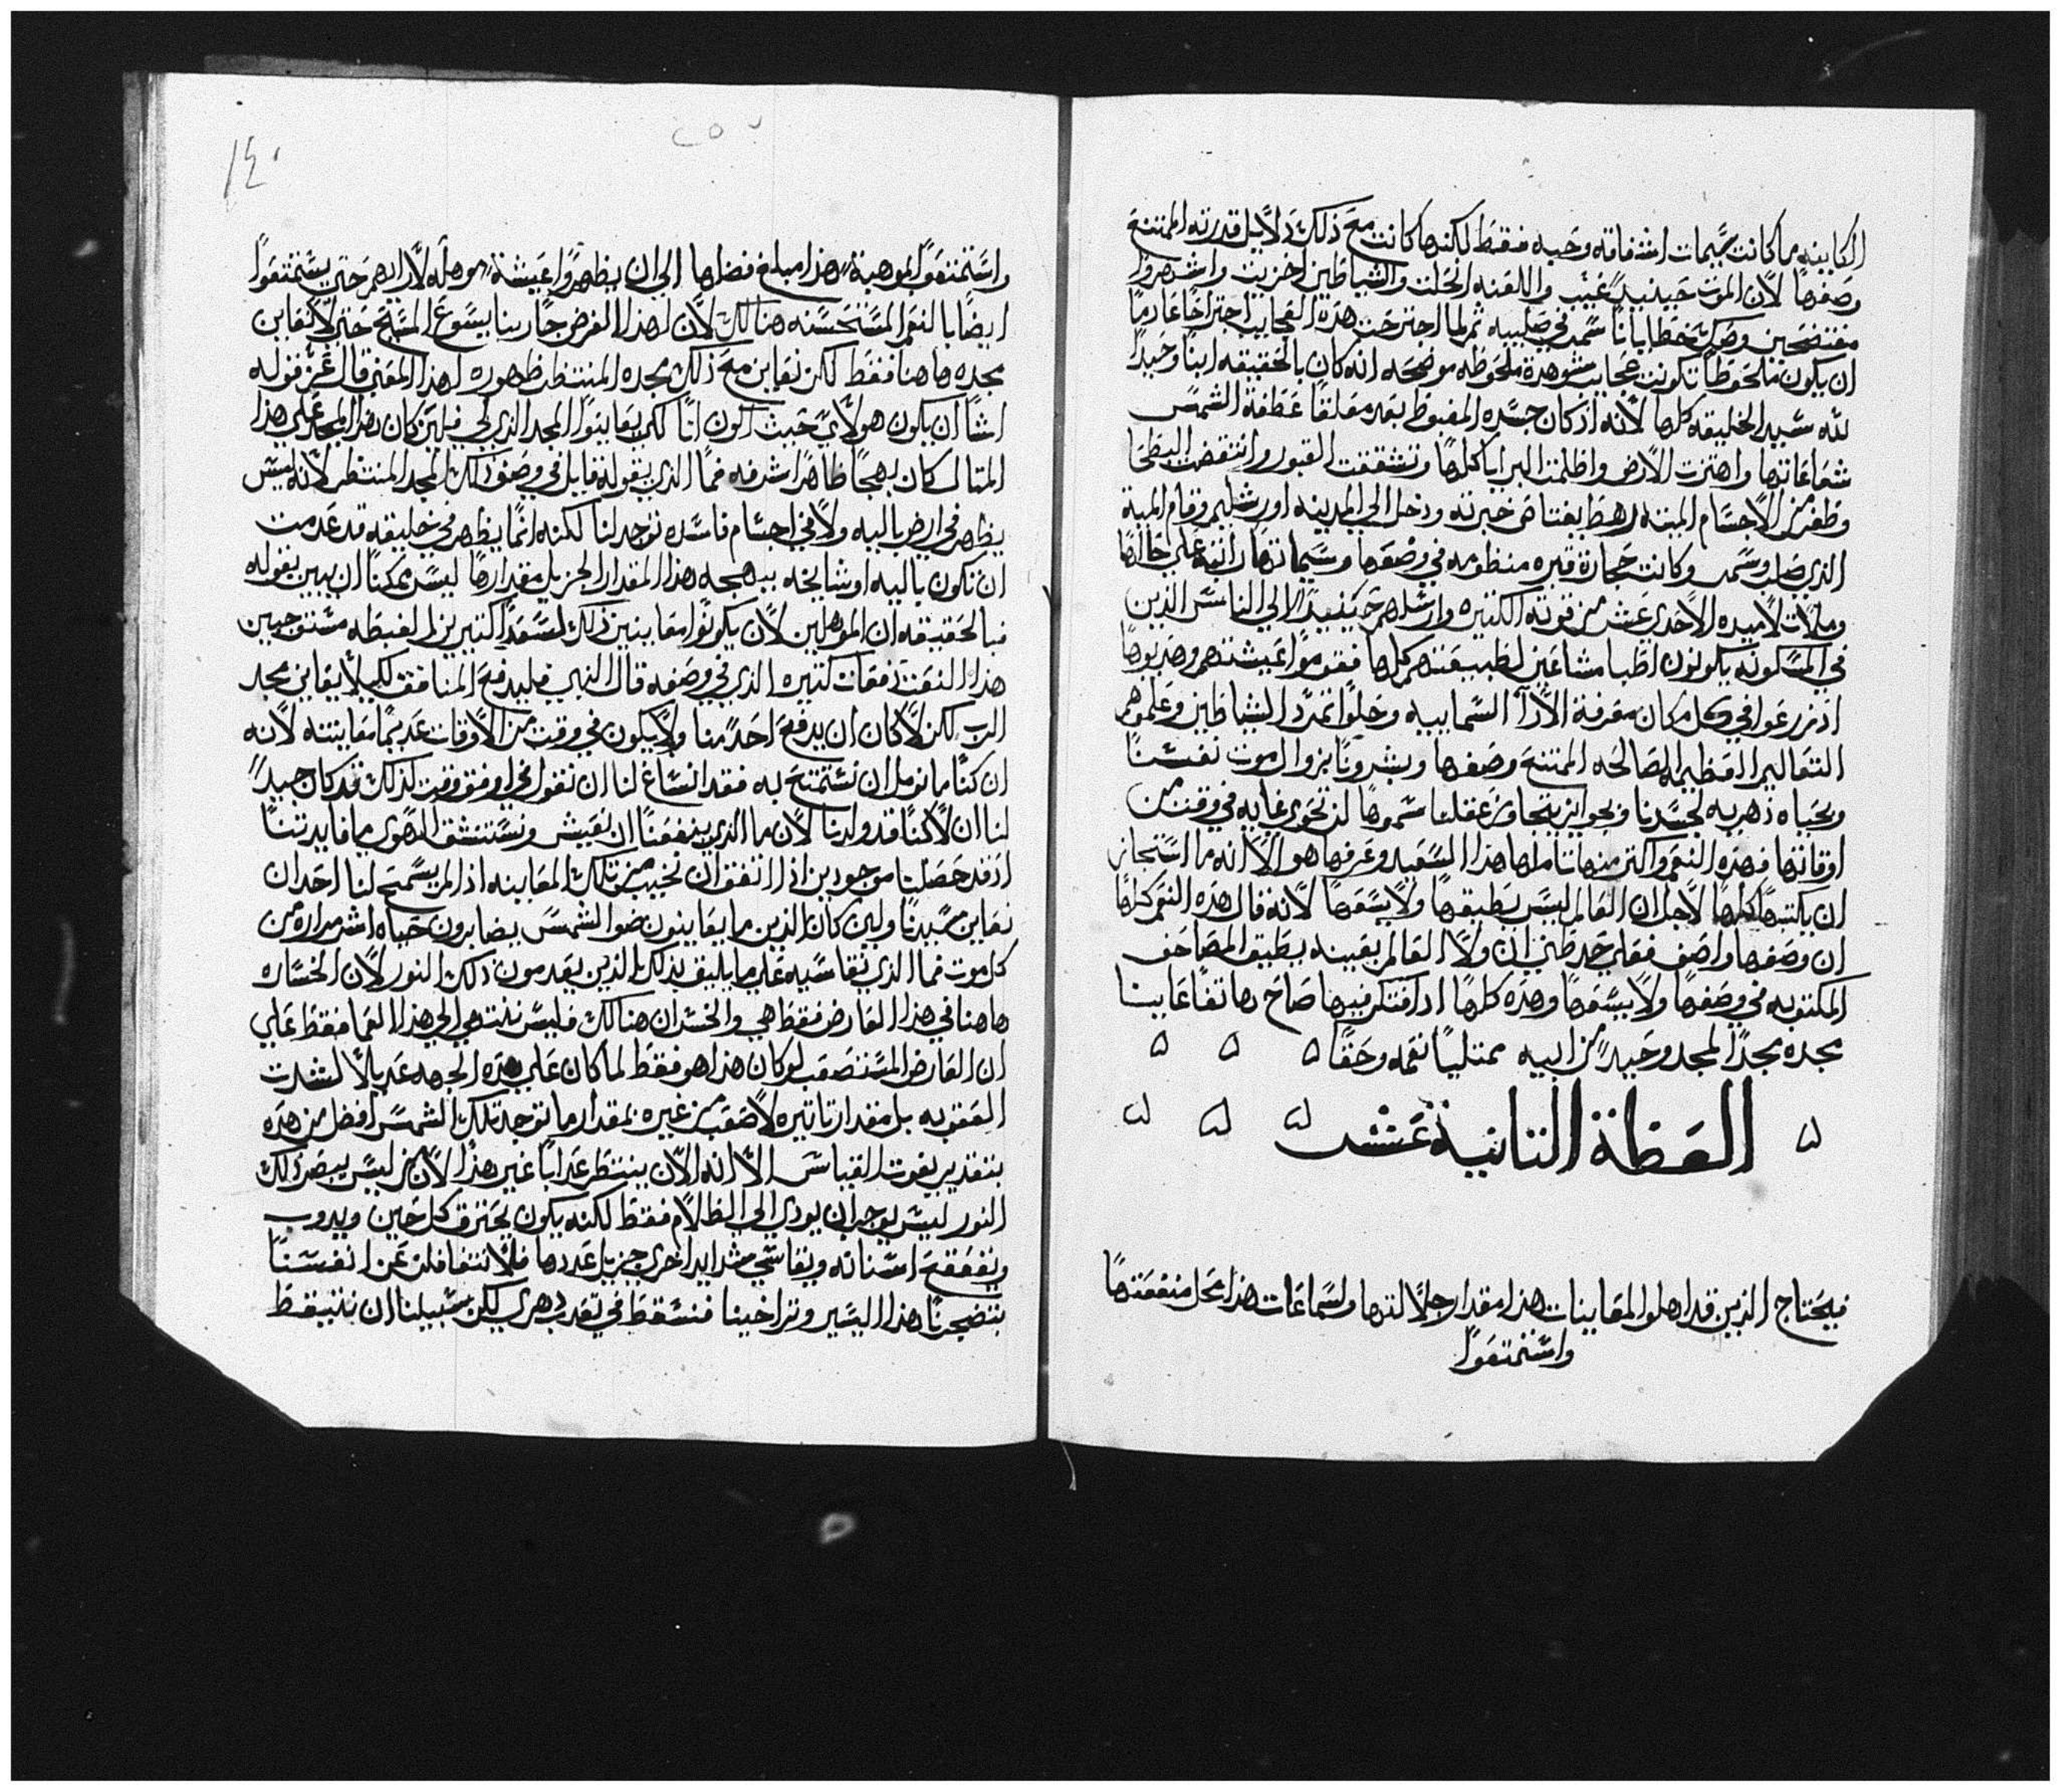 الكاينه مما كانت سمات اشفاقه وحبه فقط لكنها كانت مع ذلك دلايل قدرته الممتنع
وصفها لان الموت حينيد غيب واللعنه انحلت والشياطين اخزيت واشهروا
مفتضحين وصك خطايانا سمر في صليبه ثم لما اجترحت هذه العجايب اجتراحا عادما
ان يكون ملحوظا تكونت عجايب مشوهده ملحوظه موضحه انه كان بالحقيقه ابنا وحيدا
لله سيد الخليقه كلها لانه اذ كان جسده المغبوط بعد معلقا عطفة الشمس
شعاعاتها واهتزت الارض واظلمت البرايا كلها وتشققت القبور وانتفضت البطحا
وطفر من الاجسام الميته رهط يعتاص خبرته ودخل الي المدينه اورشليم وقام الميت
الذي صلب وسمر وكانت حجارة قبره منظومه في وضعها وسماتها راتبه علي حالها
وملا تلاميده الاحدي عشر من قوته الكتيره وارسلهم حينيد الي الناس الذين
في المسكونه يكونون اطبا مشاعين لطبيعتهم كلها فقوموا عيشتهم وهدبوها
اذ زرعوا في كل مكان معرفة الارآ السمايه وحلوا تمرد الشياطين وعلموهم
التعاليم العظيمه الصالحه الممتنع وصفها وبشرونا بزوال موت نفسنا
وبحياه دهريه لجسدنا وبجوايز يتجاوز عقلنا سموها لن تحوي غايه في وقت من
اوقاتها فهذه النعم واكتر منها تاملها هذا السعيد وعرفها هو الا انه ما استجاز
ان يكتبها كلها لاجل ان العالم ليس يطيقها ولا يسعها لانه قال هذه النعم كلها
ان وصفها واصف فعلي حد ظني ان ولا العالم بعينه يطيق المصاحف
المكتوبه في وصفها ولا يسعها وهذه كلها اذ افتكر فيها صاح هاتفا عاينا
مجده مجدا لمجد وحيد من ابيه ممتليا نعمه وحقا ۵ ۵ ۵
۵ العظة التانية عشر ۵ ۵ ۵
فيحتاج الذين قد اهلوا لمعاينات هذا مقدار جلالتها ولسماعات هذا محل منفعتها
واستمتعوا
١٤٠
٢٥٧
واستمتعوا بموهبة هذا مبلغ فضلها الي ان يظهروا عيشة موهله لارايهم حتي يستمتعوا
ايضا بالنعم المستحسنه هنالك لان لهذا الغرض جا ربنا يسوع المسيح حتي لا نعاين
مجده هاهنا فقط لكن نعاين مع ذلك مجده المنتظر ظهوره لهذا المعني قال عز قوله
اشا ان يكون هولاي حيث اكون انا لكي يعاينوا المجد الذي لي فلين كان هذا المجد علي هذا
المتال كان بهجا ظاهرا شرفه فما الذي يقوله قايل في وصف ذلك المجد المنتظر لانه ليس
يظهر في ارض باليه ولا في اجسام فاسده توجد لنا لكنه انما يظهر في خليقه قد عدمت
ان تكون باليه او شايخه ببهجه هذا المقدار الجزيل مقدارها ليس يمكنا ان نبين بقوله
فبالحقيقه ان الموهلين لان يكونوا معاينين ذلك لسعدا كتير يزل لغبطه مستوجبين
هذا النعت دفعات كتيره الذي في وصفه قال النبي فليدفع المنافق لكي لا يعاين مجد
الرب لكن لا كان ان يدفع احد منا ولا يكون في وقت من الاوقات عديما معاينته لانه
ان كنا ما نومل ان نستمتع به فقد انساغ لنا ان نقول في اوفق وقت لذلك قد كان جيد
لنا ان لا كنا قد ولدنا لان ما الذي ينفعنا ان نعيش ونستنشق الهوي ما فايدتنا
اذ قد حصلنا موجودين اذا اتفق ان نخيب من تلك المعاينه اذ لم يسمح لنا احد ان
نعاين سيدنا ولين كان الذين ما يعاينون ضوالشمس يصابرون حياه اشر مراره من
كل موت فما الذي نقاسيه علي ما يليق بذلك الذين يعدمون ذلك النور لان الخساره
هاهنا في هذا العارض فقط هي والخسران هنالك فليس تنتهي الي هذا العما فقط علي
ان العارض المستصعب لو كان هذا هو فقط لما كان علي هذه الجهه عديلا لشدت
العقوبه بل مقدار تاتيره لاصعب من غيره بمقدار ما توجد تلك الشمس افضل من هذه
بتقدير يفوت القياس الا انه الان ينتظر عدابا غير هذا لان من ليس يبصر ذلك
النور ليس يوجب ان يودي الي الظلام فقط لكنه يكون يحترق كل حين ويدوب
ويقعقع اسنانه ويقاسي شدايد اخري جزيل عددها فلا نتغافلن عن انفسنا
بتضجرنا هذا اليسير وتراخينا فنسقط في تعديب دهري لكن سبيلنا ان نتيقظ